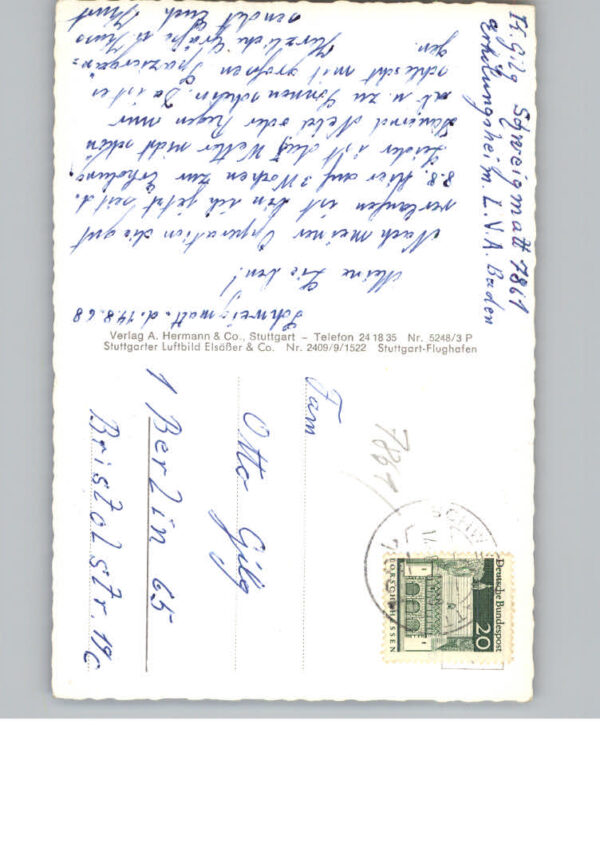 K. Gilg Schweigmatt 7861
Erholungsheim. L.V.A. Baden
Schweigmatt. d. 14.8.68
Meine Lieben!
Nach meiner Operation die gut
verlaufen ist bin ich jetzt seit d.
8.8. hier auf 3 Wochen zur Erholung.
Leider ist das Wetter nicht schön
dauernd Nebel oder Regen nur
ab u. zu Sonnenschein. Da ist es
schlecht mit großen Spaziergän=
gen.
Herzliche Grüße u. Kuss
sendet Euch Kurt
Verlag A. Hermann & Co., Stuttgart – Telefon 24 18 35 Nr. 5248/3 P
Stuttgarter Luftbild Elsäßer & Co. Nr. 2409/9/1522 Stuttgart-Flughafen
Fam
Otto Gilg
1 Berlin 65
Bristolstr. 11C
7861
Deutsche Bundespost
20
LORSCH/HESSEN